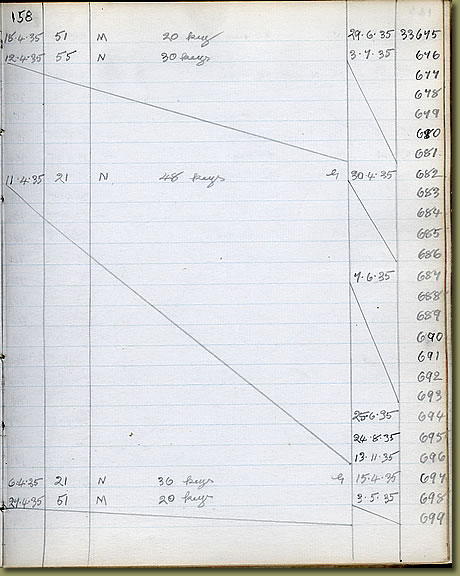 158
18.4.35 51 M 20 key 29.6.35 33675
12.4.35 55 N 30 keys 3.7.35 676
677
678
679
680
681
11.4.35 21 N 48 keys G 30.4.35 682
683
684
685
686
7.6.35 687
688
689
690
691
692
693
25.6.35 694
24.8.35 695
13.11.35 696
6.4.35 21 N 36 keys G 15.4.35 697
24.4.35 51 M 20 keys 3.5.35 698
699